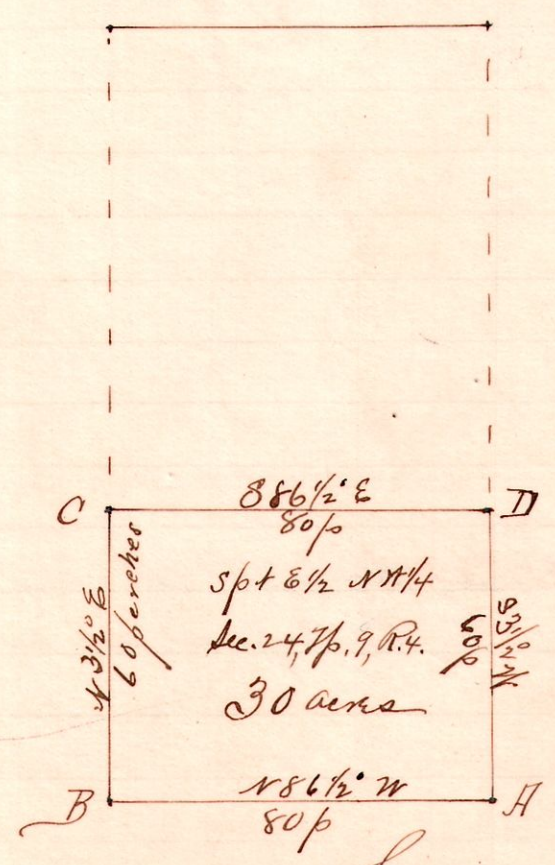 C
S86½° E
D
80p
N 3½° E
60 perches
spt E½ NW¼
Sec. 24, Tp. 9, R. 4.
30 acres
S3½° W
60p
B
N86½° W
A
80p